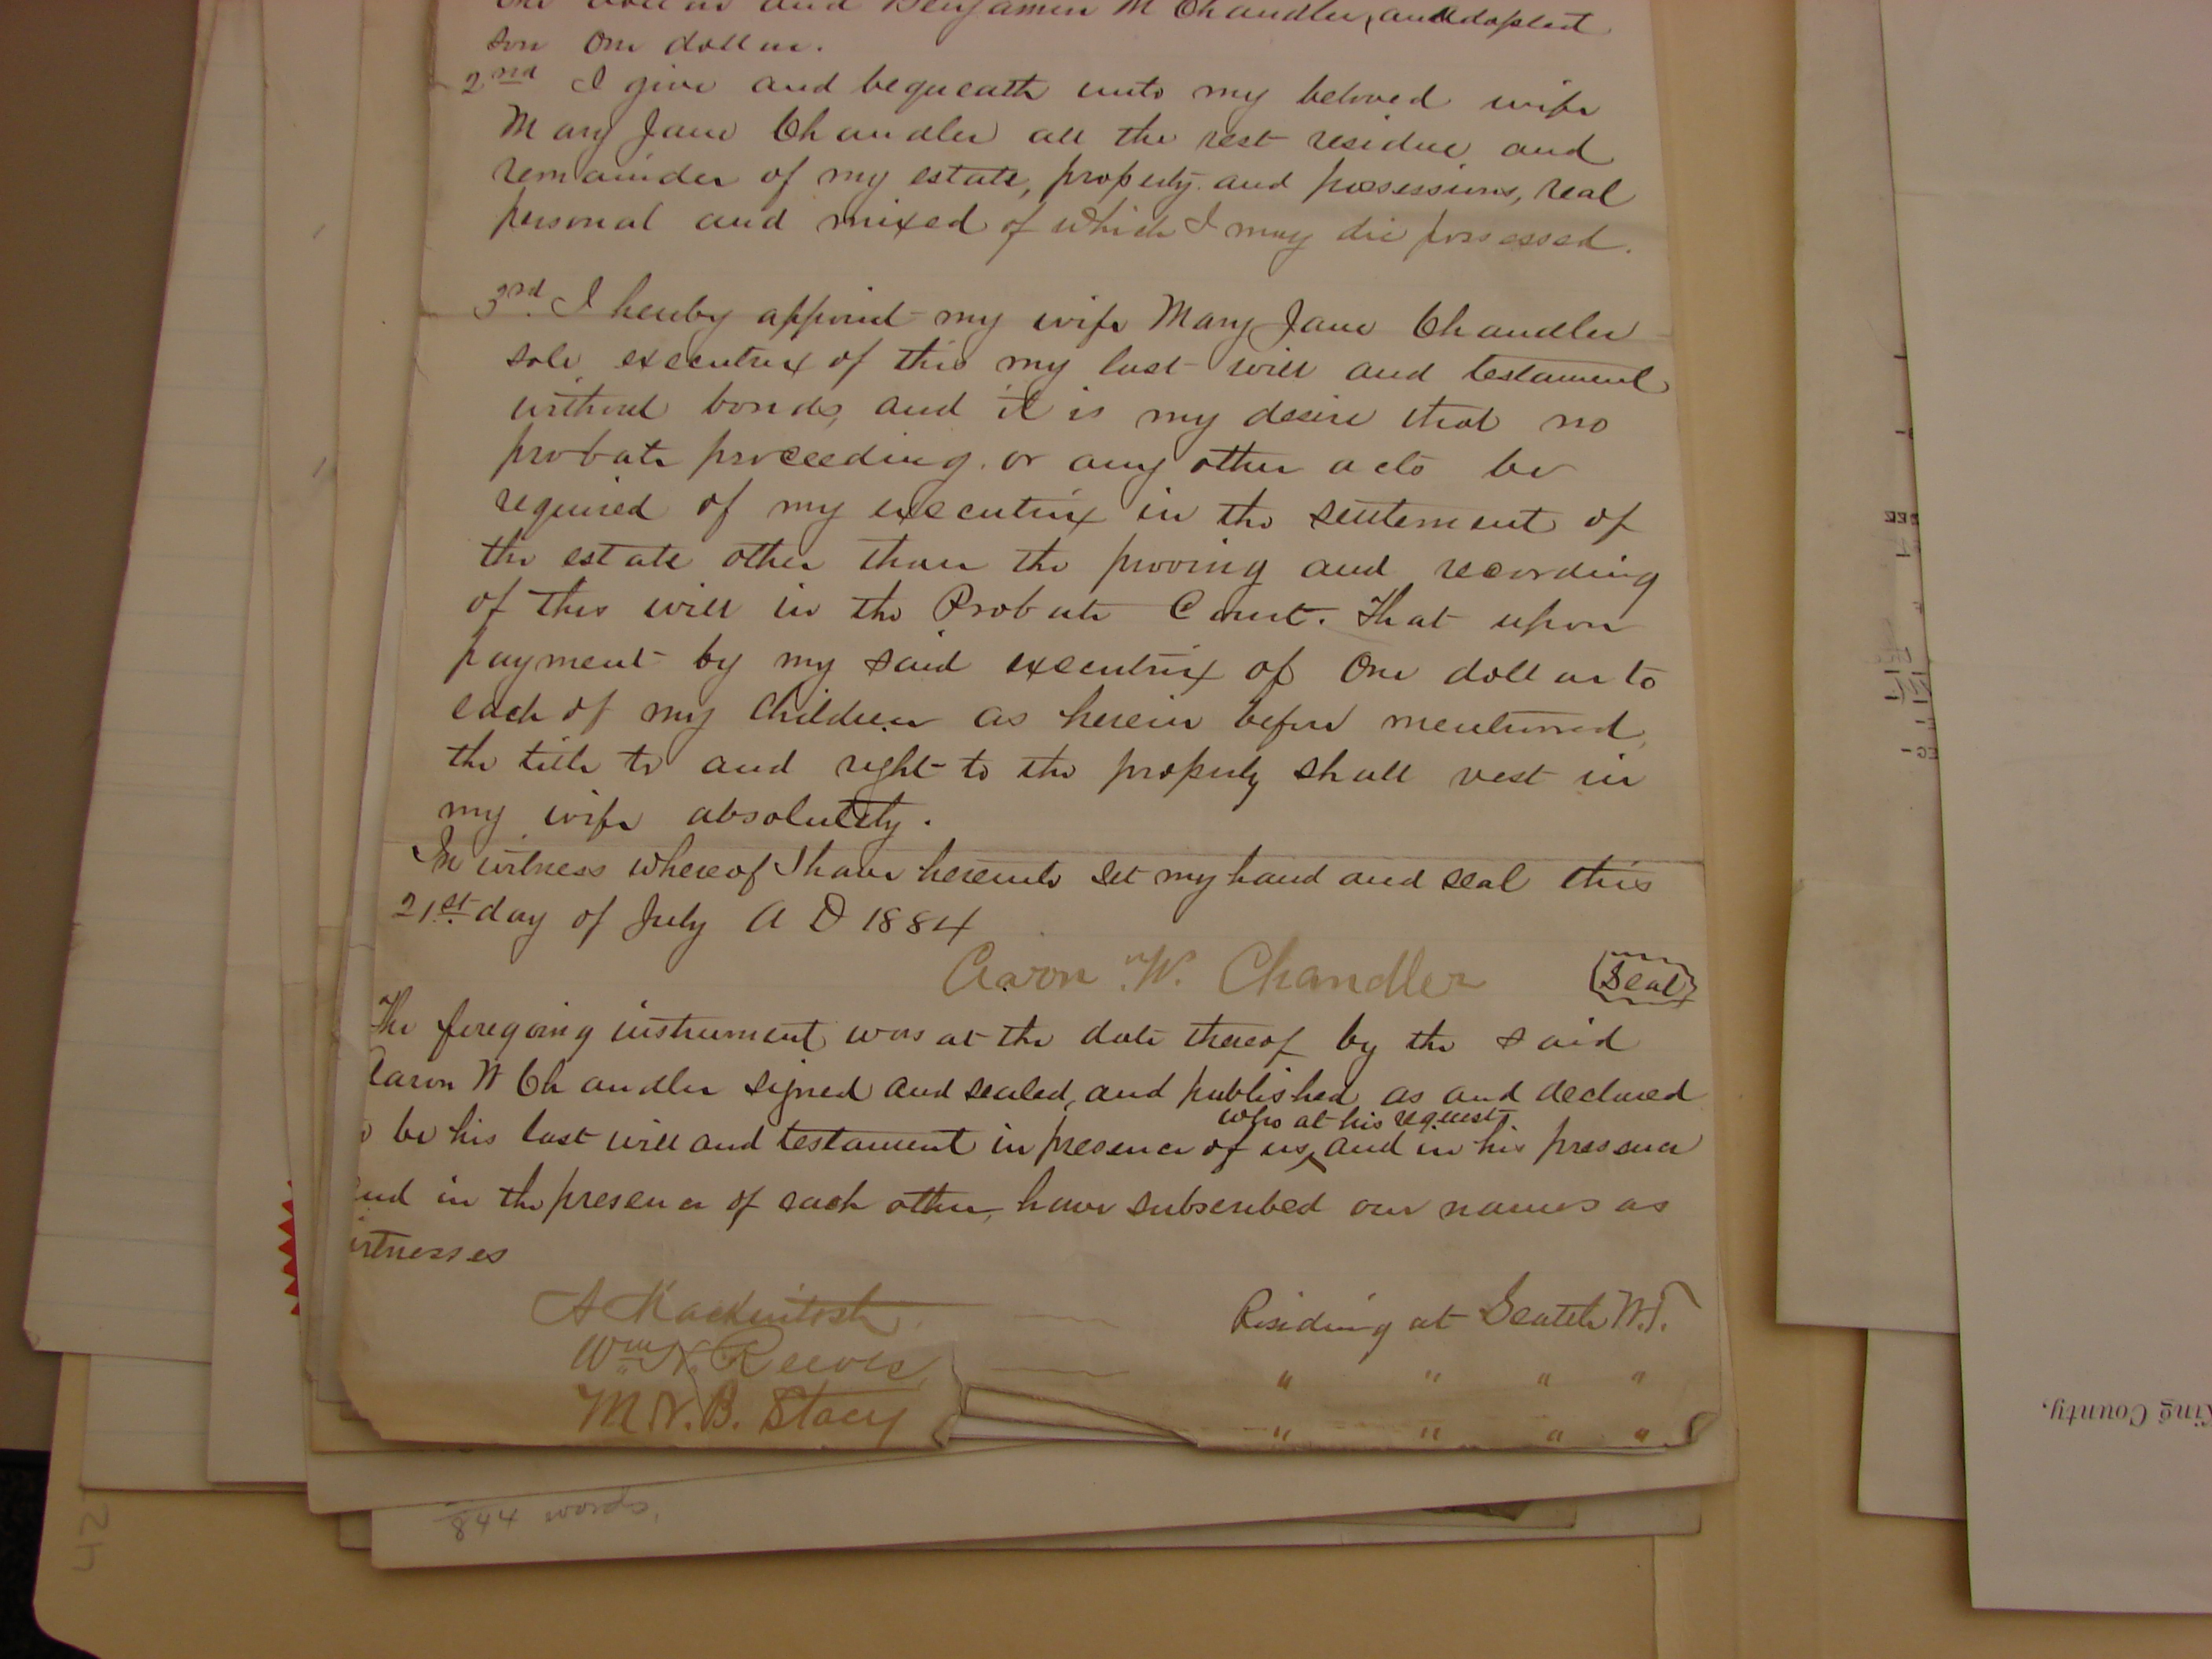 one dollar and Benjamin M Chandler, an adopted
son One dollar.
2nd I give and bequeath unto my beloved wife
Mary Jane Chandler all the rest residue and
remainder of my estate, property and possessions, real
personal and mixed of which I may die possessed.
3rd. I hereby appoint my wife Mary Jane Chandler
sole executrix of this my last will and testament
without bonds, and it is my desire that no
probate proceeding or any other acts be
required of my executrix in the settlement of
the estate other than the proving and recording
of this will in the Probate Court. That upon
payment by my said executrix of One dollar to
each of my children as herein before mentioned,
the title to and right to the property shall vest in
my wife absolutely.
In witness whereof I have hereunto set my hand and seal this
21st day of July A D 1884
Aaron W. Chandler (Seal)
The foregoing instrument was at the date thereof by the said
Aaron W Chandler signed and sealed, and published as and declared
who at his request
be his last will and testament in presence of us, and in his presence
and in the presence of each other, have subscribed our names as
witnesses
A Mackintosh Residing at Seattle W.T.
Wm H. Reeves " " " "
M. V. B. Stacy " " " "
448
King County.
42